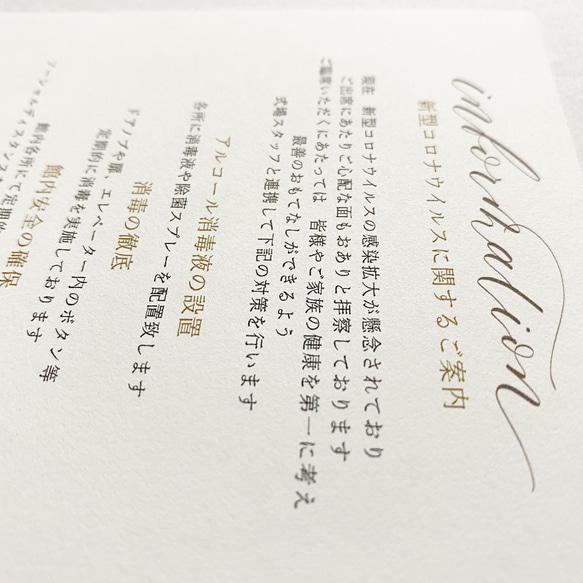 information
新型コロナウイルスに関するご案内
現在 新型コロナウイルスの感染拡大が懸念されており
ご出席にあたりご心配な面もおありと拝察しております
ご臨席いただくにあたっては 皆様やご家族の健康を第一に考え
最善のおもてなしができるよう
式場スタッフと連携して下記の対策を行います
アルコール消毒液の設置
各所に消毒液や除菌スプレーを配置致します
消毒の徹底
ドアノブや扉、エレベーター内のボタン等
定期的に消毒を実施しております
館内安全の確保
館内各所にて定期的
ソーシャルディスタンス